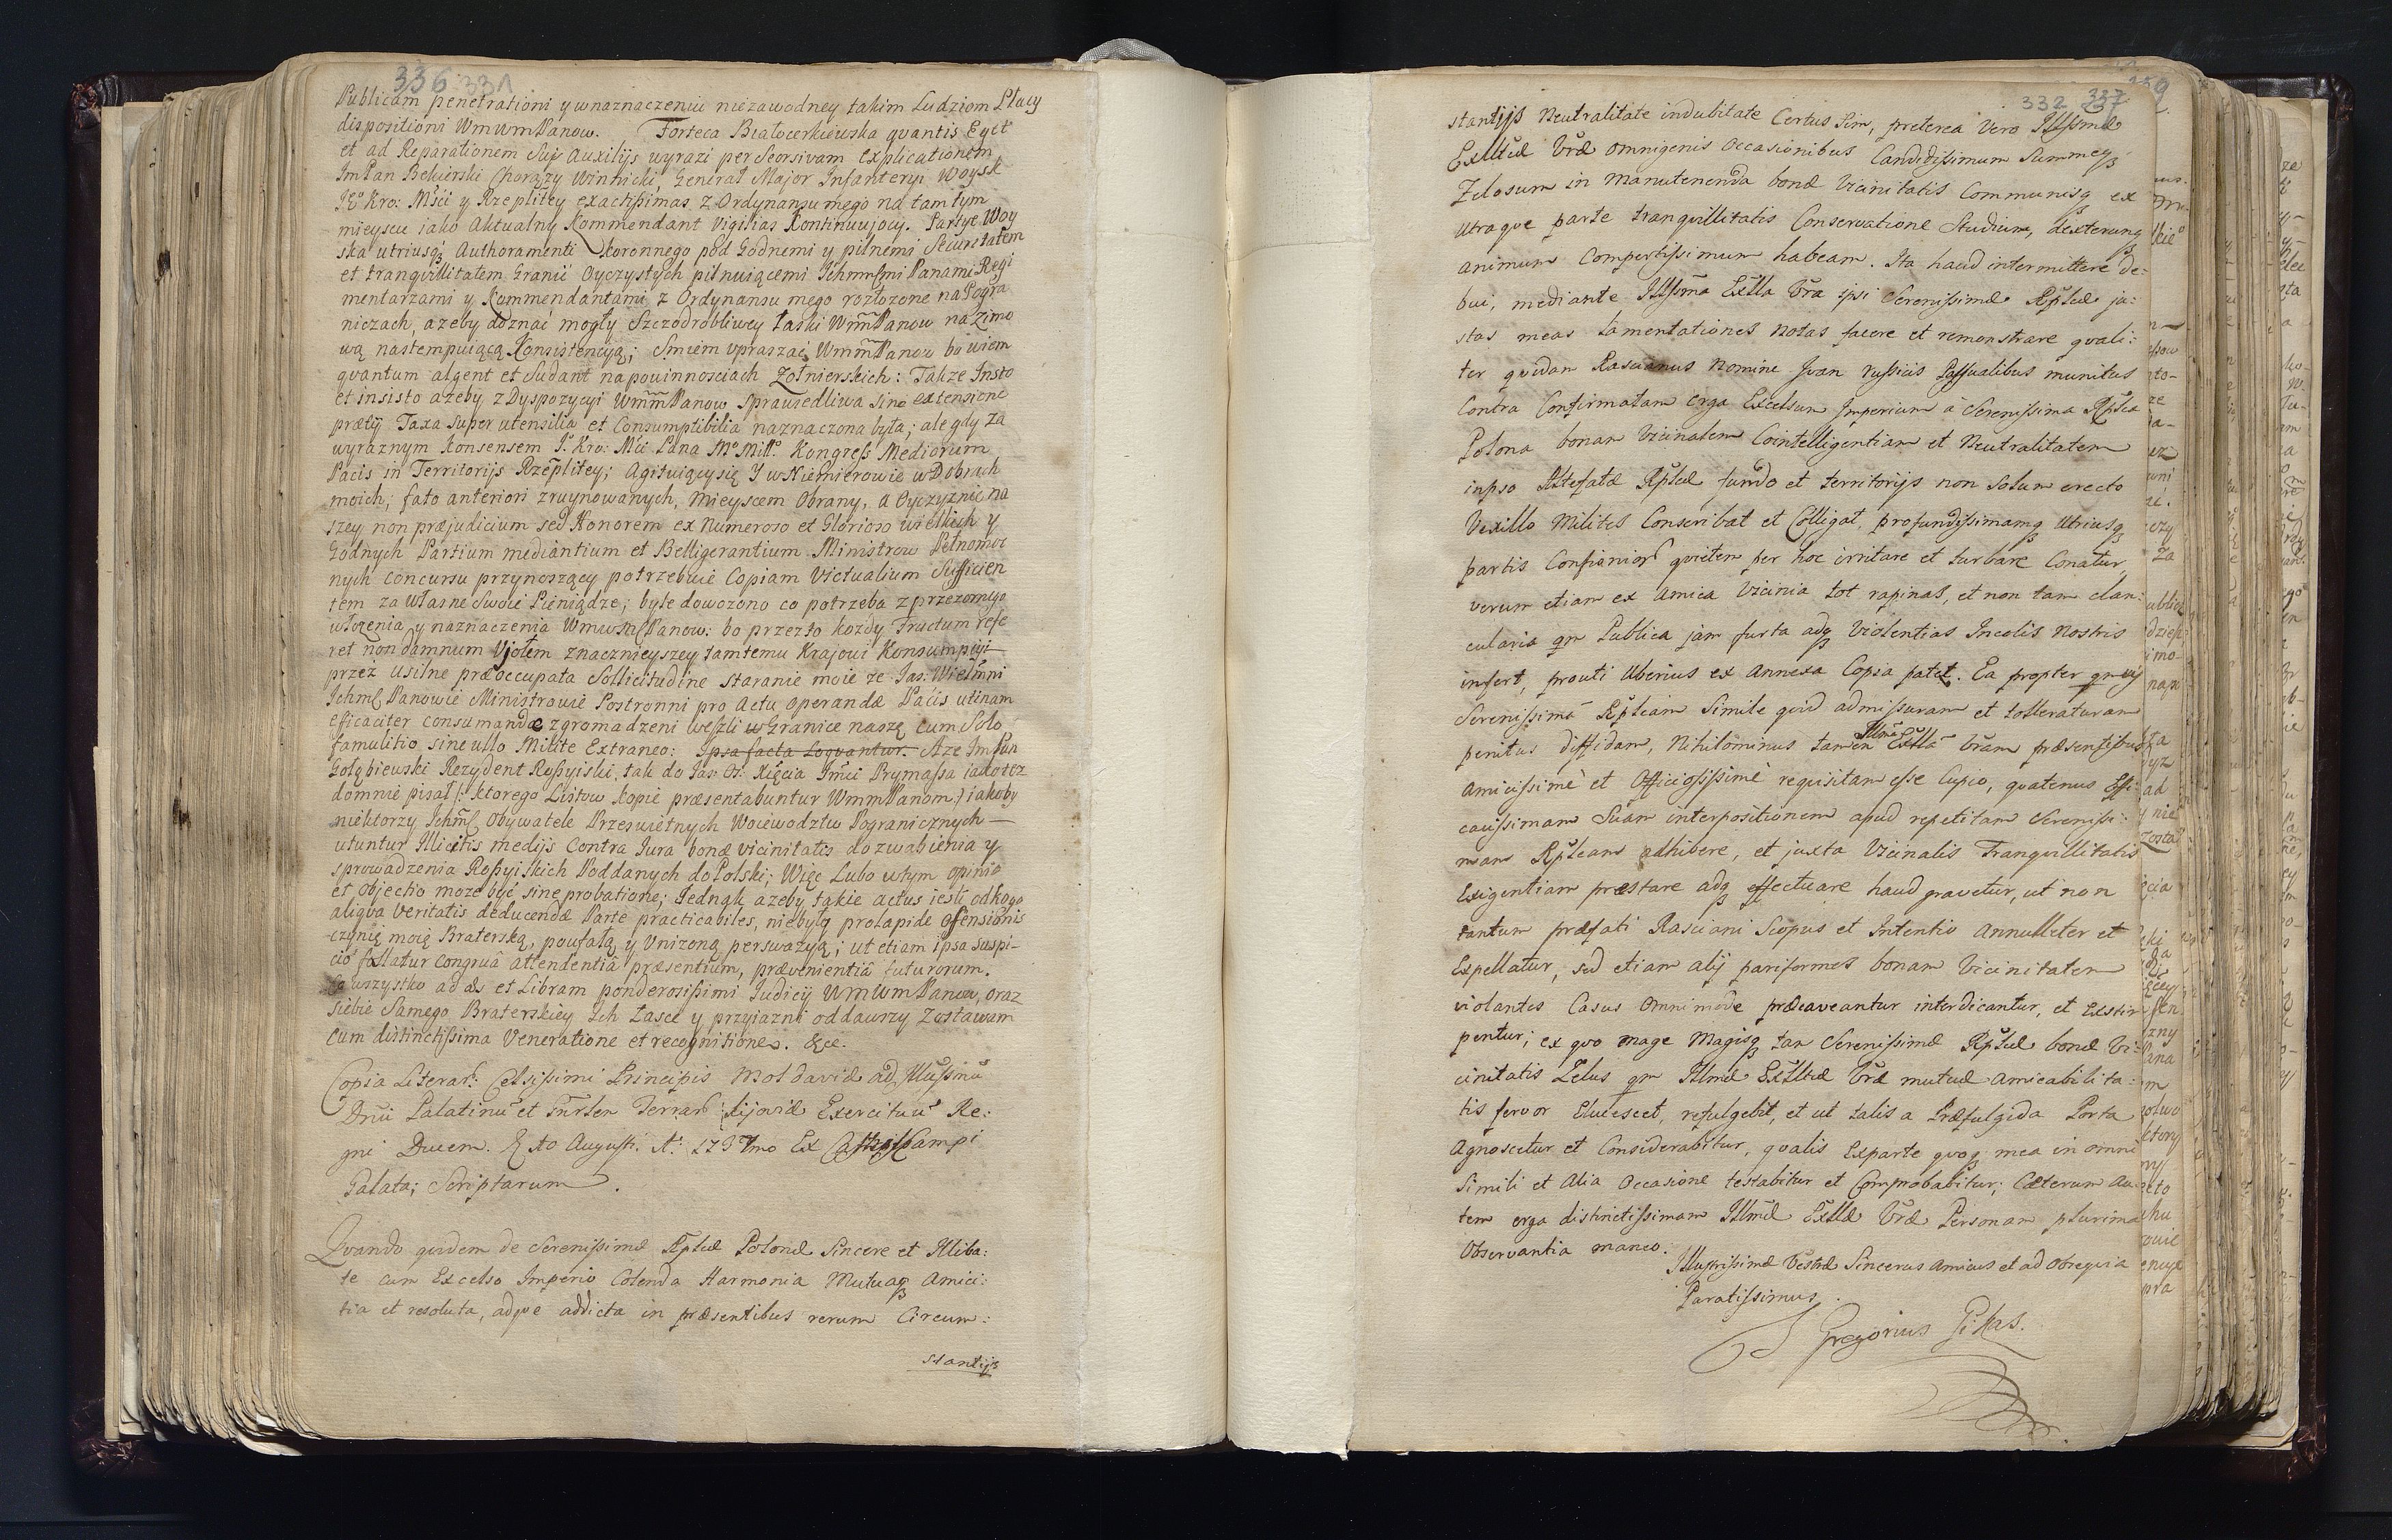 336 331
Publicam penetrationi y w naznaczeniu niezawodney takim Ludziom Płacy
dispositioni WmwmPanow. Forteca Białocerkiewska quantis Eget
et ad Reparationem Suę Auxilijs wyrazi per Seorsivam explicationem
ImPan Bekierski Chorązy Winnicki, General Major Infanteryi Woysk
JKo Kro: Mści y Rzeplitey exactissimas z Ordynansu mego na tamtym
mieyscu iako Aktualny Kommendant Vigilias Kontinuujący. Partye Woy
ska utriusq Authoramenti Koronnego pod Godnemi y pilnemi Securitatem
et tranquillitatem Granic Oyczystych pilnuiącemi Ichmmsmi Panami Regi
mentarzami y Kommendantami z Ordynansu mego rozłozone na Pogra
niczach, azeby doznać mogły Szczodrobliwey łaski WmmPanow na Zimo
wą nastempuiącą Konsistencyą; Smiem vpraszać WmmPanow bo wiem
quantum algent et Sudant na powinnosciach Zołnierskich: Takze Insto
et insisto azeby z Dyspozycyi WmmPanow Sprawiedliwa sine extensione
prætij Taxa Super utensilia et Consumptibilia naznaczona była; ale gdy za
wyraznym Konsensem Jo Kro: Mći Pana Mo Miłło Kongress Mediorum
Pacis in Territorijs Rzeplitey; agituiącysię Y w Niemierowie w Dobrach
moich, fato anteriori zruynowanych, mieyscem Obrany, a Oyczyznie na
szey non præjudicium sed Honorem ex Numeroso et Glorioso wielkich y
Godnych Partium mediantium et Belligerantium Ministrow Pełnomoc
nych concursu przynoszący potrzebuie Copiam Victualium Sufficien
tem za własne Swoie Pieniądze; byle dowozono co potrzeba z przezornego
ułozenia y naznaczenia WmwmPanow: bo przezto kozdy Fructum refe
ret non damnum Vjołem znacznieyszey tamtemu Krajowi Konsumpcyi
przez usilne præoccupata Sollicitudine staranie moie ze Jas: Wielmni
Ichms Panowie Ministrowie Postronni pro Actu operandæ Pacis utinam
efficaciter consumandæ zgromadzeni weszli w Granice naszę cum Solo
famulitio sine ullo Milite Extraneo: Ipsa facta Loquantur. A ze ImPan
Gołębiewski Rezydent Rossyiski, tak do Jas: O: Xięcia Jmći Prymassa iako tez
do mnie pisał (: ktorego Listow kopie præsentabuntur WmmPanom:) iakoby
niektorzy Ichms Obywatele Przeswietnych Woiewodztw Pogranicznych
utuntur Illicitis medijs Contra Jura bonæ vicinitatis do zwabienia y
sprowadzenia Rossyiskich Poddanych do Polski; Więc Lubo w tym opinio
et objectio moze być sine probatione; Jednak azeby takie actus iesli od kogo
aliqua Veritatis deducendæ Parte practicabiles, niebyły pro lapide offensionis
czynię moię Braterską, poufałą y Vnizoną perswazyą; ut etiam ipsa suspi-
cio fallatur congruâ attendentiâ præsentium, prævenientiâ futurorum.
Co wszystko ad as et Libram ponderosissimi Judicij WmwmPanow, oraz
siebie Samego Braterskiey Ich łasce y przyiazni oddawszy Zostawam
cum distinctissima Veneratione et recognitione. &ce.
Copia Literar: Celsissimi Principis Moldaviæ ad Illussimu
Dnu Palatinu et Gnrlen Terrar: Kijoviæ Exercituu Re:
gni Ducem. to Augusti Ao: 1737mo Ex Castris Campi
Galata; Scriptarum.
Quando quidem de Serenissimæ Rptcæ Polonæ Sincere et Illiba:
te cum Excelso Imperio Colenda Harmonia Mutuaq Amici:
tia et resoluta, adque addicta in præsentibus rerum Circum:
stantijs
332 337
stantijs Neutralitate indubitate Certus Sim, preterea Vero Illssmæ
Exlltiæ Vræ omnigenis occasionibus Candidissimum Summeq
Zelosum in manutenenda bonæ Vicinitatis Communisq ex
utraque parte tranquillitatis Conservatione Studium, dexterumq
animum Compertissimum habeam. Ita haud intermittere de:
bui, mediante Illssma Extlla Vra ipsi Serenissimæ Rptcæ ju:
stas meas Lamentationes Notas facere et remonstrare quali:
ter quidam Rascianus Nomine Jvan russicis Passualibus munitus
Contra Confirmatam erga Excelsum Imperium a Serenissima Rptca
Polona bonam Vicinalem Cointelligentiam et Neutralitatem
in ipso Attefatæ Rptcæ fundo et territorijs non Solum erecto
Vexillo Milites Conscribat et Colligat, profundissimamq utriusq
partis Confinior quietem per hoc irritare et turbare Conatur,
verum etiam ex Amica Vicinia tot rapinas, et non tam clan:
cularia qm Publica jam furta adq Violentias Incolis Nostris
infert, prouti Uberius ex Annexa Copia patet. Ea propter qmvis
Serenissima Rptcam Simile quid admissuram et tolleraturam
penitus diffidam, Nihilominus tamen Illma Extlla Vram præsentibus
amicissime et Officiosissime requisitam esse Cupio, quatenus Effi:
cacissimam Suam interpositionem apud repetitam Serenissi:
mam Rptcam adhibere, et juxta Vicinalis Tranquillitatis
Exigentiam præstare adq effectuare haud gravetur, ut non
tantum præfati Rasciani Scopus et Intentio Annulletur et
Expellatur, sed etiam alij pariformes bonam Vicinitatem
violantes Casus omnimode præcaveantur interdicantur, et Exstir
pentur; ex quo mage Magisq tam Serenissimæ Rptcæ bonæ Vi:
cinitatis Zelus qm Illmæ Exlltiæ Vræ mutuæ Amicabilita:
tis fervor Elucescet, refulgebit, et ut talis a Præfulgida Porta
Agnoscetur et Considerabitur, qualis Ex parte quoq mea in omni
Simili et Alia Occasione testabitur et Comprobabitur; Cæterum Au:
tem erga distinctissimam Illmæ Extllæ Vræ Personam plurima
Observantia maneo.
Illustrissimæ Vestræ Sincerus Amicus et ad Obsequia
Paratissimus.
Gregorius Gikas.